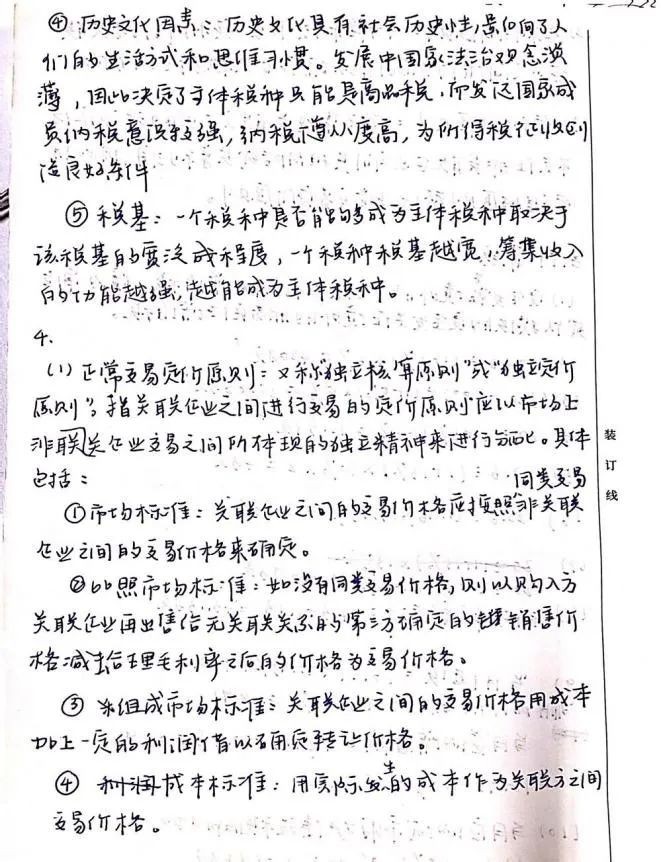 ④ 历史文化因素：历史文化具有社会历史性，影响了人
们的生活方式和思维习惯。发展中国家法治观念淡
薄，因此决定了主体税种只能是商品税，而发达国家成
员纳税意识较强，纳税遵从度高，为所得税征收创
造良好条件
⑤ 税基：一个税种是否能够成为主体税种取决于
该税基的宽泛程度，一个税种税基越宽，筹集收入
的功能越强，越能成为主体税种。
4.
(1) 正常交易定价原则：又称"独立核算原则"或"独立定价
原则"，指关联企业之间进行交易的定价原则应以市场上
非联关企业交易之间所体现的独立精神来进行分配。具体
包括：
同类交易
①市场标准：关联企业之间的交易价格应按照非关联
企业之间的交易价格来确定。
②比照市场标准：如没有同类交易价格，则以购入方
关联企业再出售给无关联关系的第三方确定的销售价
格减去合理毛利率之后的价格为交易价格。
③ 组成市场标准：关联企业之间的交易价格用成本
加上一定的利润借以确定转让价格。
④ 成本标准：用实际发生的成本作为关联方之间
交易价格。
装
订
线